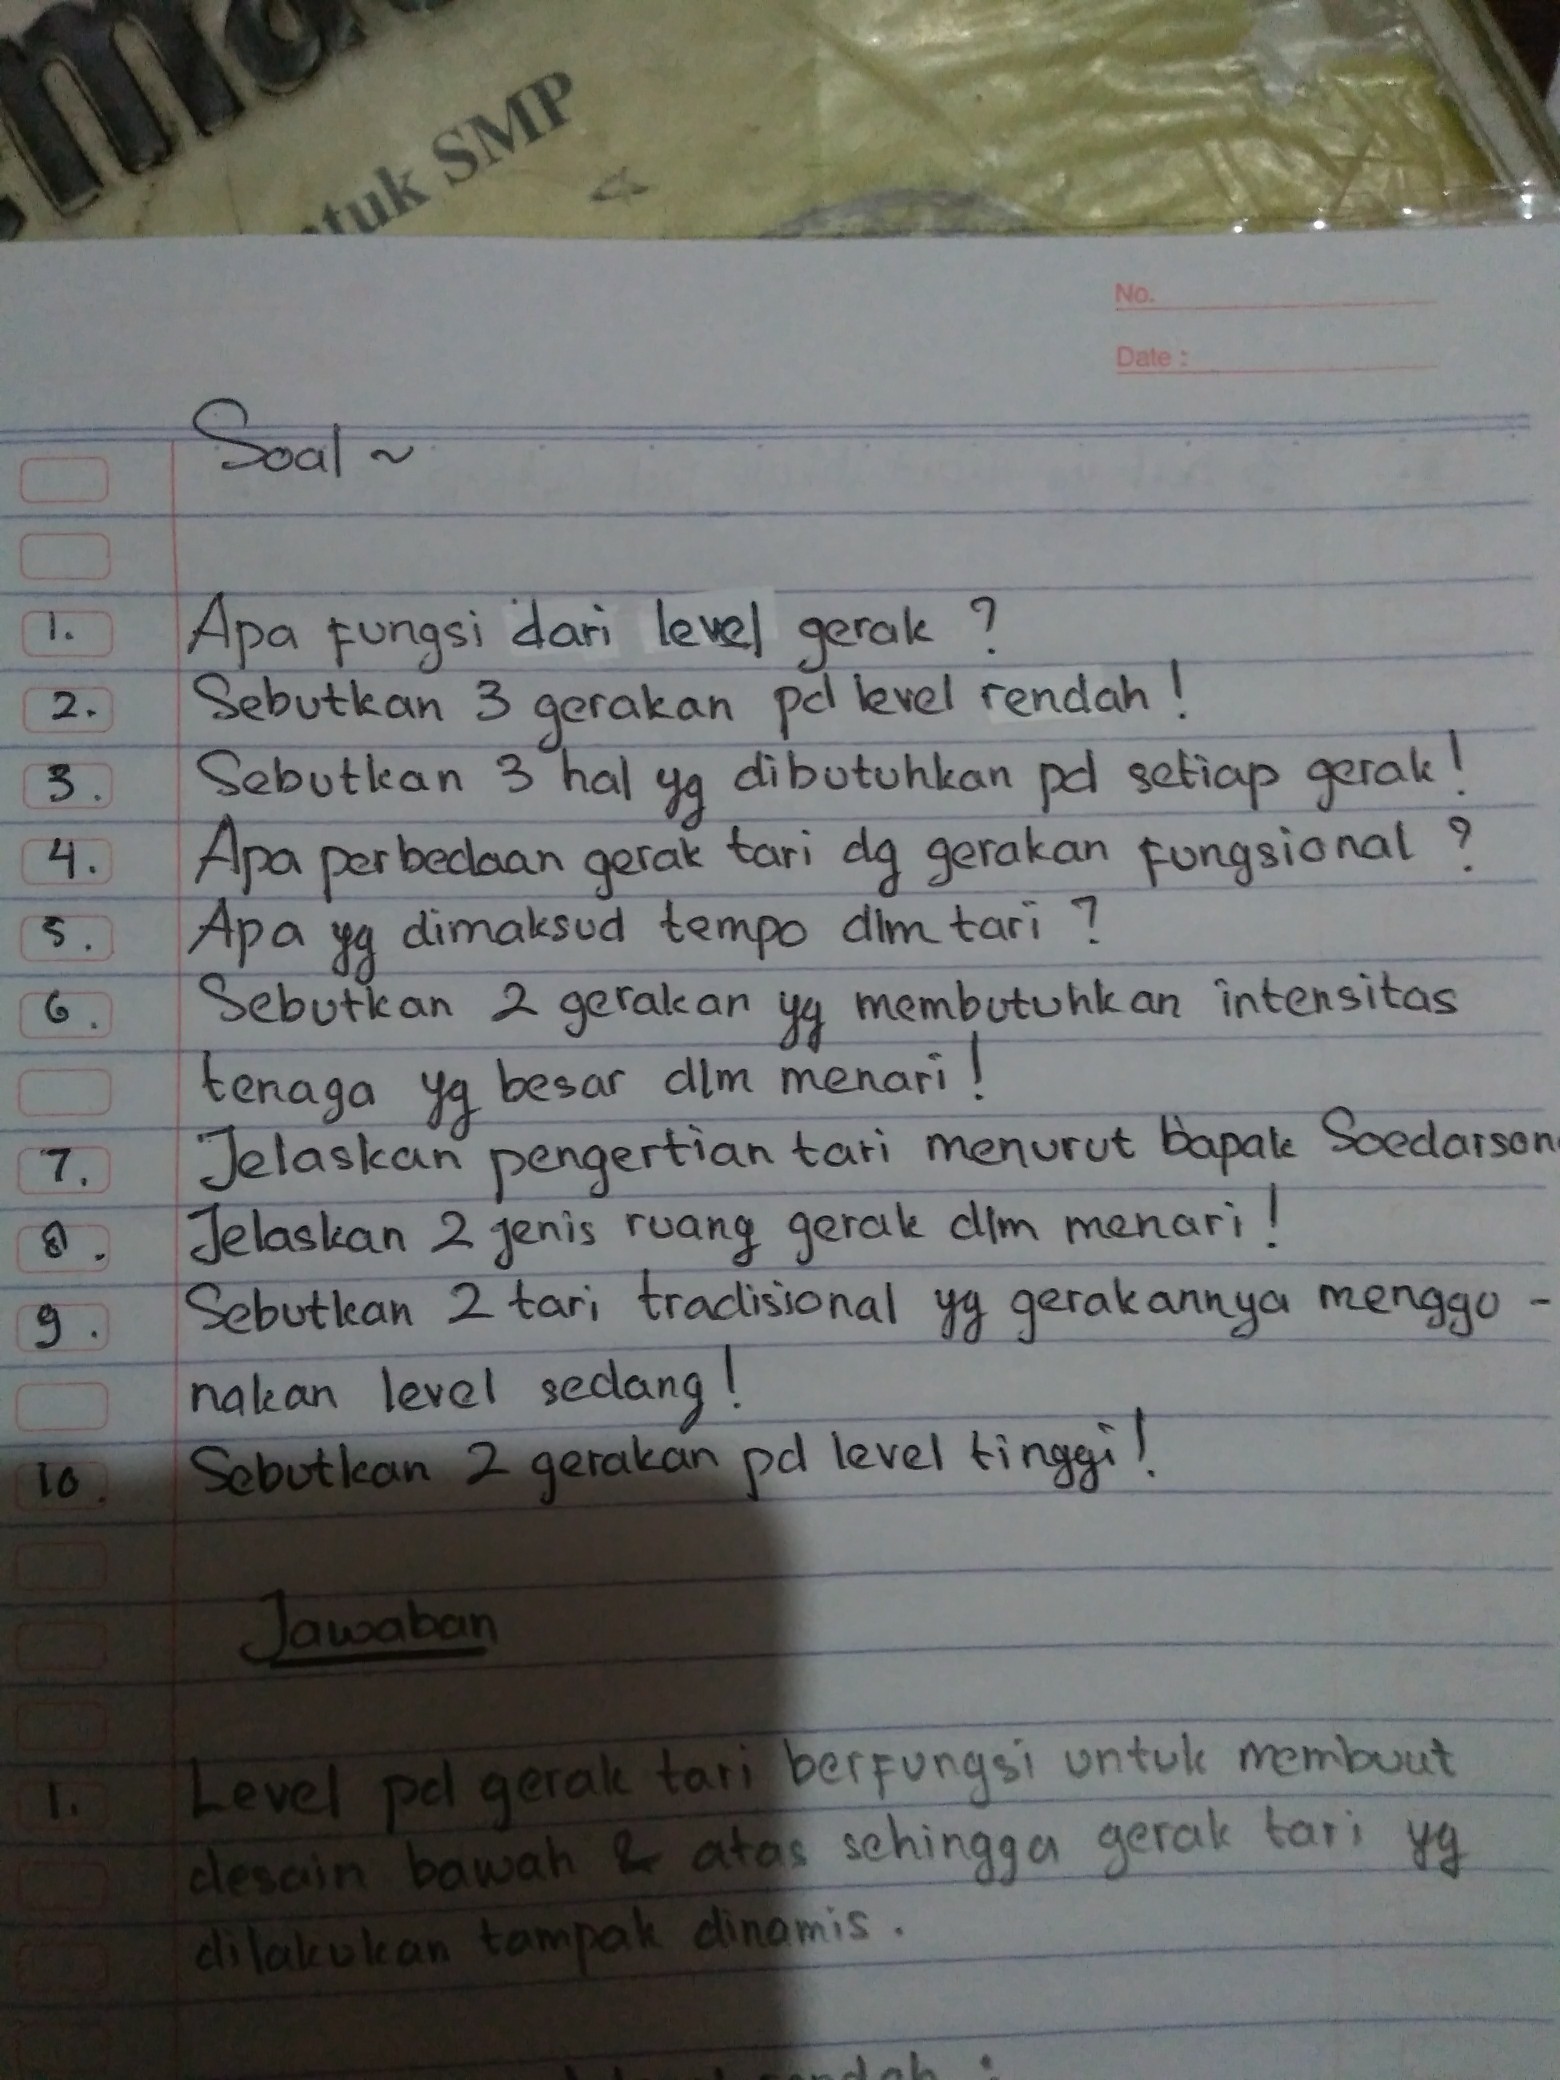 tuk SMP
No.
Date :
Soal ~
1. Apa fungsi dari level gerak ?
2. Sebutkan 3 gerakan pd level rendah !
3. Sebutkan 3 hal yg dibutuhkan pd setiap gerak !
4. Apa perbedaan gerak tari dg gerakan fungsional ?
5. Apa yg dimaksud tempo dlm tari ?
6. Sebutkan 2 gerakan yg membutuhkan intensitas
tenaga yg besar dlm menari !
7. Jelaskan pengertian tari menurut bapak Soedarson
8. Jelaskan 2 jenis ruang gerak dlm menari !
9. Sebutkan 2 tari tradisional yg gerakannya menggu -
nakan level sedang !
10. Sebutkan 2 gerakan pd level tinggi !
Jawaban
1. Level pd gerak tari berfungsi untuk membuat
desain bawah & atas sehingga gerak tari yg
dilakukan tampak dinamis .